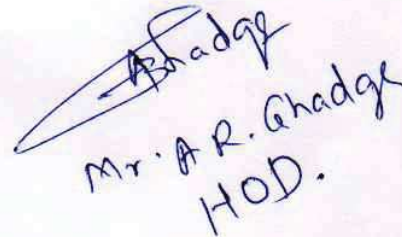 AGhadge
Mr. A R. Ghadge
HOD.